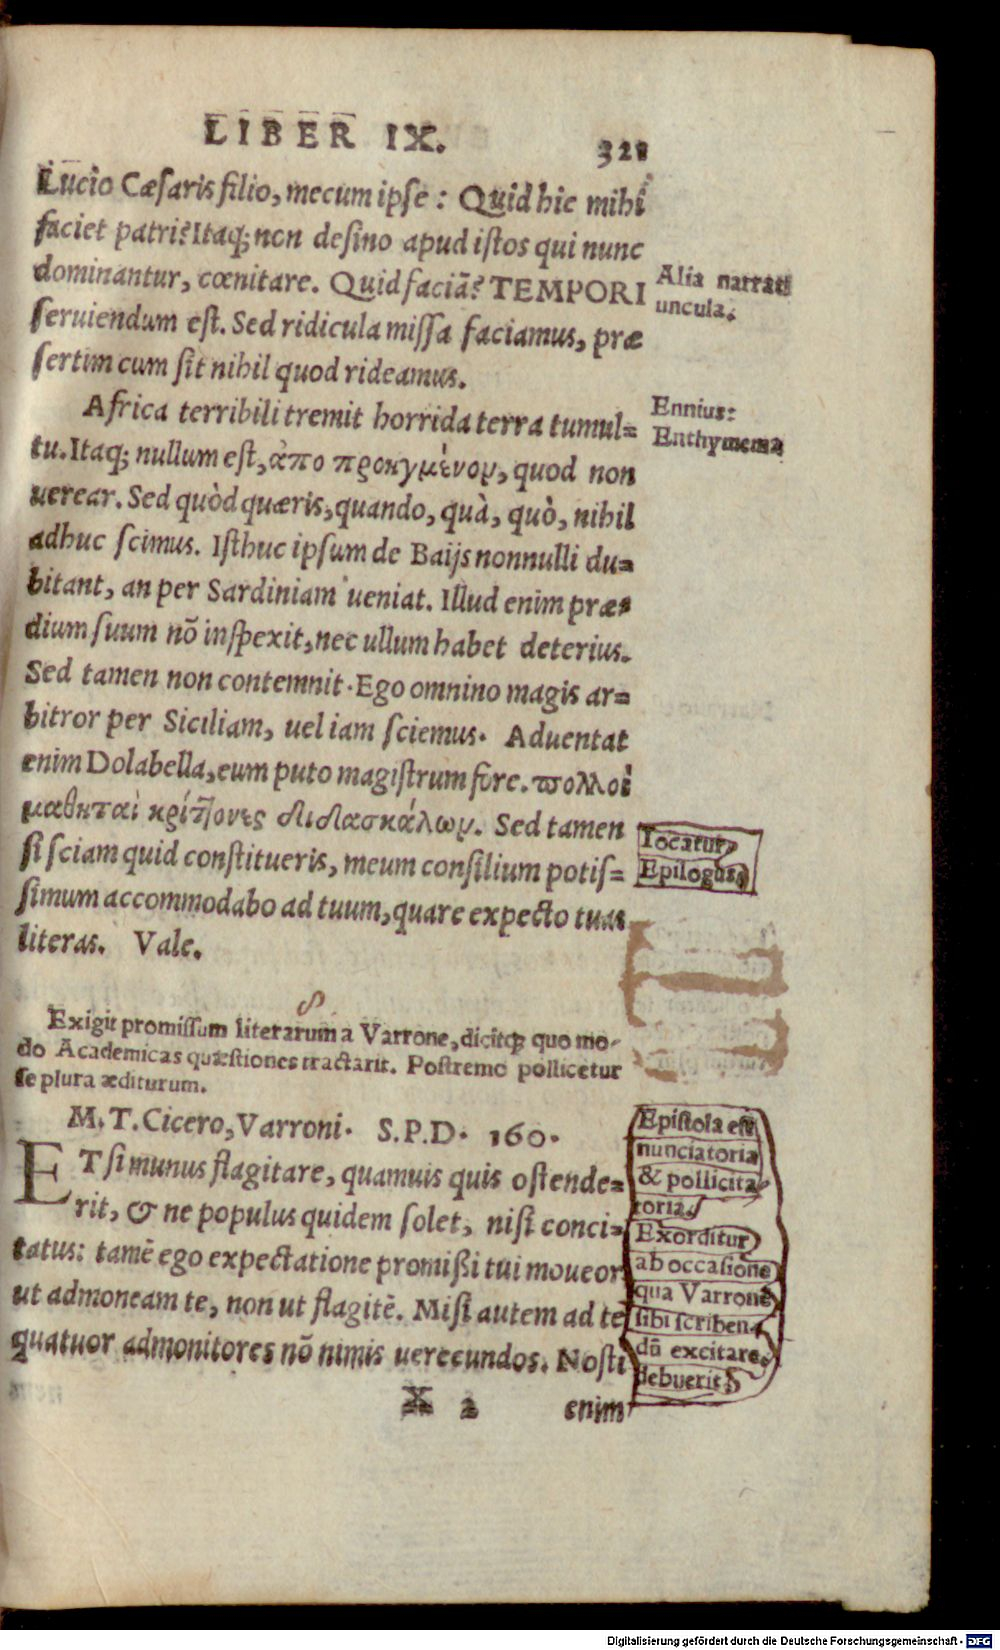 LIBER IX. 321
Lucio Cæſaris filio, mecum ipſe: Quid hic mihi
faciet patri? Itaq; non deſino apud iſtos qui nunc
dominantur, cœnitare. Quid faciã? TEMPORI
ſeruiendum eſt. Sed ridicula miſſa faciamus, præ
ſertim cum ſit nihil quod rideamus.
Alia narrati
uncula.
Africa terribili tremit horrida terra tumul=
tu. Itaq; nullum eſt, ἀπο προηγμένου, quod non
uerear. Sed quòd quæris, quando, quà, quò, nihil
adhuc ſcimus. Iſthuc ipſum de Baijs nonnulli du=
bitant, an per Sardiniam ueniat. Illud enim præ=
dium ſuum nō inſpexit, nec ullum habet deterius.
Sed tamen non contemnit. Ego omnino magis ar=
bitror per Siciliam, uel iam ſciemus. Aduentat
enim Dolabella, eum puto magiſtrum fore. πολλοὶ
μαθηταὶ κρίττονες διδασκάλων. Sed tamen
ſi ſciam quid conſtitueris, meum conſilium potiſ=
ſimum accommodabo ad tuum, quare expecto tuas
literas. Vale.
Ennius:
Enthymema
Iocatur,
Epilogus.
Exigit promiſſum literarum a Varrone, dicitq; quo mo-
do Academicas quæſtiones tractarit. Poſtremo pollicetur
ſe plura æditurum.
M. T. Cicero, Varroni. S. P. D. 160.
ET ſi munus flagitare, quamuis quis oſtende=
rit, & ne populus quidem ſolet, niſi conci=
tatus: tamē ego expectatione promiſſi tui moueor
ut admoneam te, non ut flagitē. Miſi autem ad te
quatuor admonitores nō nimis uerecundos. Noſti
Epiſtola eſt
nunciatoria
& pollicita
toria.
Exorditur
ab occaſione
qua Varrone
ſibi ſcriben
dū excitare
debuerit.
X 2 enim
Digitalisierung gefördert durch die Deutsche Forschungsgemeinschaft - DFG